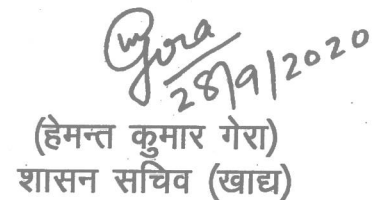 Gera
28/9/2020
(हेमन्त कुमार गेरा)
शासन सचिव (खाद्य)